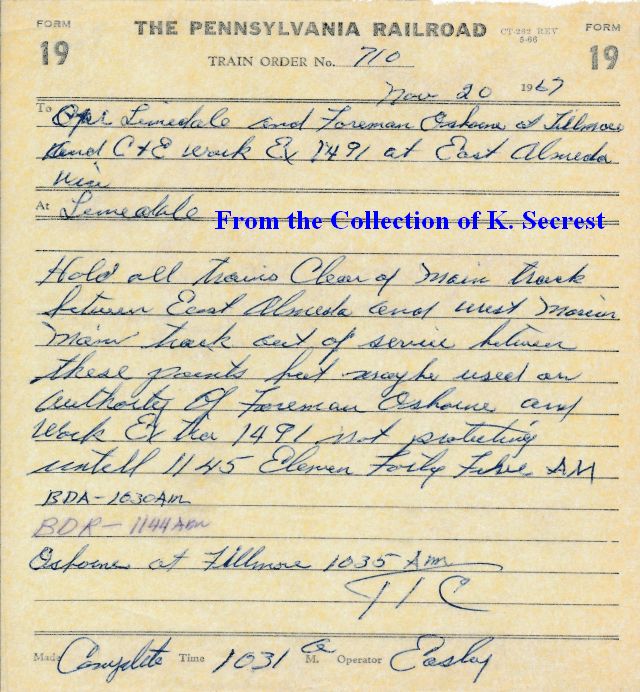 FORM 19
THE PENNSYLVANIA RAILROAD
CT-262 REV 5-66
FORM 19
TRAIN ORDER No. 710
Nov 20 1967
To Opr Limedale and Foreman Osborne at Fillmore
and C+E work Ex 1491 at East Almeda
via
At Limedale
From the Collection of K. Secrest
Hold all trains Clear of Main track
between East Almeda and west
Main track out of service between
these points but maybe used on
authority Of Foreman Osborne and
Work Extra 1491 not protecting
untell 1145 Eleven Forty Five AM
BDA-1030AM
BDR-1144AM
Osborne at Fillmore 1035 Am
Made Complete Time 1031 a M. Operator Easley